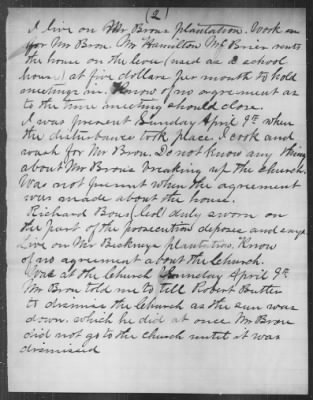 (2)
I live on Mr Brous plantation. Work on
for Mr Brou. Mr Hamilton McBrier rents
the house on the levee (used as a school
house) at five dollars per month to hold
meetings in. Know of no agreement as
to the time meeting should close.
I was present Sunday April 9th when
the disturbance took place. I cook and
wash for Mr Brou. Do not know any thing
about Mr Brous breaking up the church.
Was not present when the agreement
was made about the house.
Richard Bous (Col) duly sworn on
the part of the prosecution deposes and says
Live on Mr plantation. Know
of no agreement about the Church.
Was at the Church Sunday April 9th
Mr Brou told me to tell Robert Butler
to dismiss the Church as the sun was
down. which he did at once Mr Brou
did not go to the Church until it was
dismissed